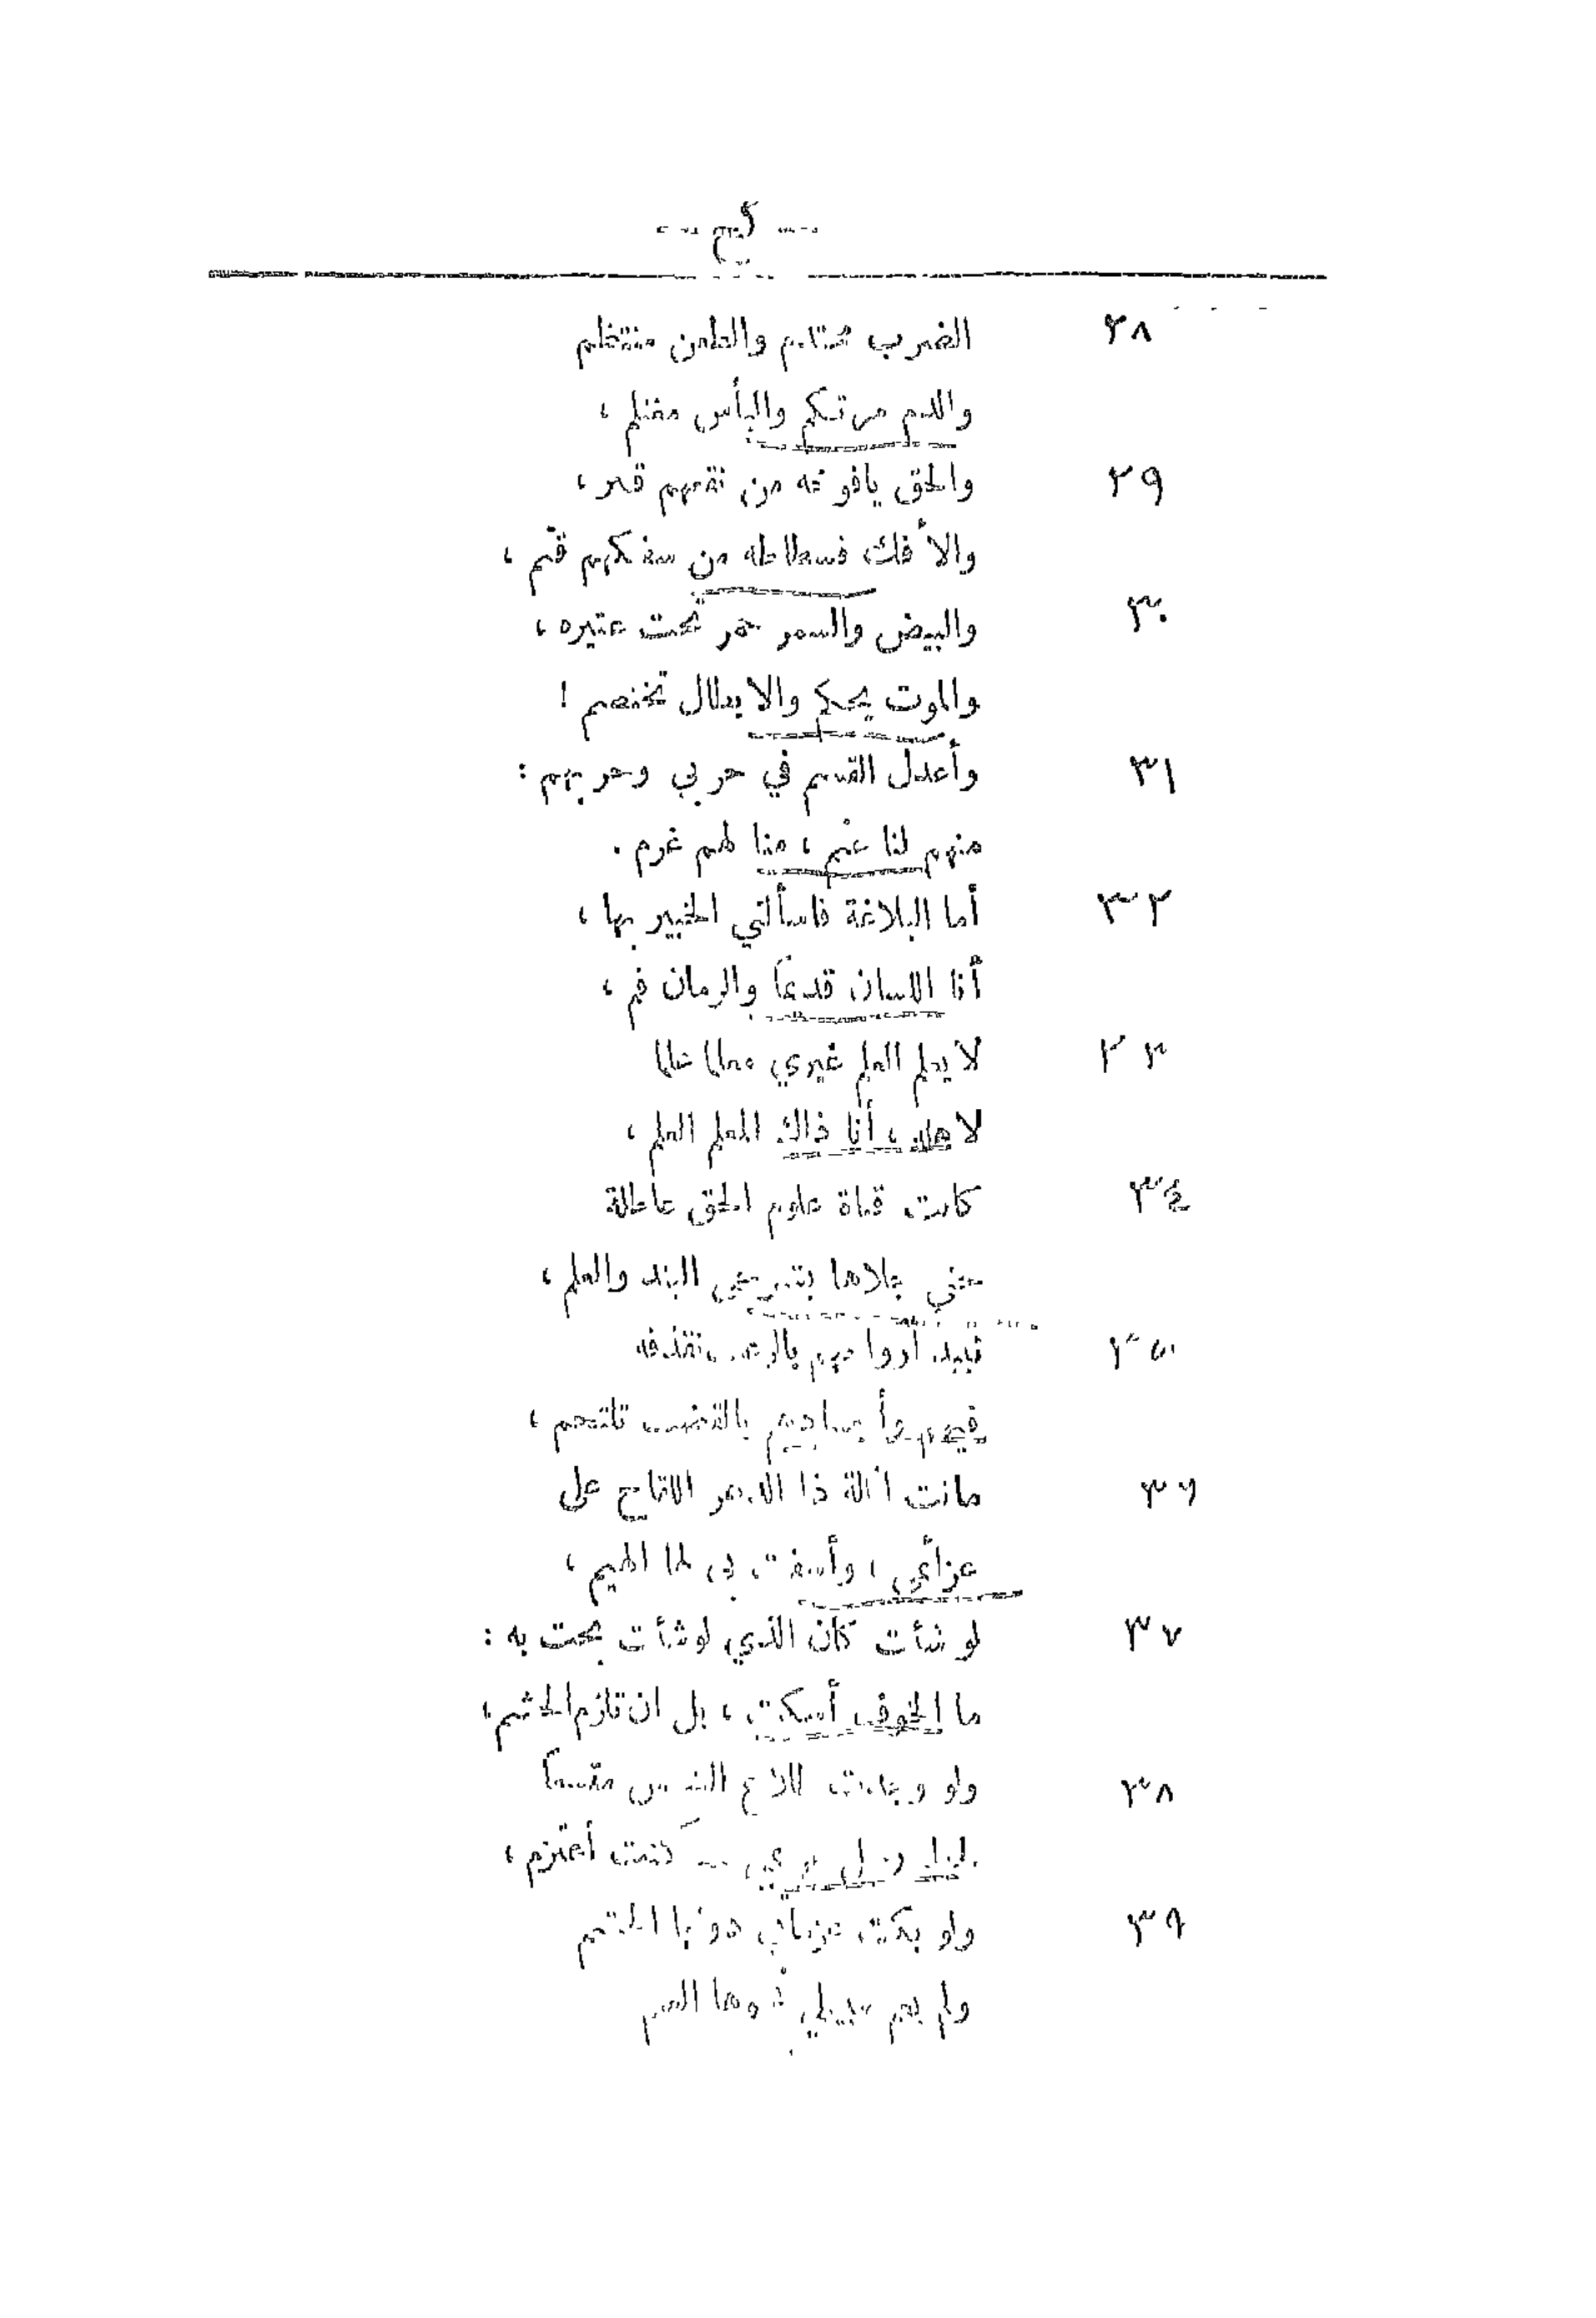 ٢٨
الضرب محتدم والطعن منتظم
والدم مرتكم والبأس مغتلم ،
٢٩
والحق يافوخه من نقعهم قتر ،
والأفك فسطاطه من سفكهم قتم ،
٣٠
والبيض والسمر حمر تحت عثيره ،
والموت يحكم والابطال تختصم !
٣١
وأعدل القسم في حربي وحربهم :
منهم لنا غنم ، منا لهم غرم .
٣٢
أما البلاغة فاسألني الخبير بها ،
أنا اللسان قديماً والزمان فم ،
٣٣
لا يعلم العلم غيري معلماً علماً
لأهله ، أنا ذاك المعلم العلم ،
٣٤
كانت قناة علوم الحق عاطلة
حتى جلاها بشرحي البند والعلم ،
٣٥
تبيد أرواحهم بالرعب تقذفه
فيهم وأجسادهم بالقضب تلتحم ،
٣٦
ماتت اذالة ذا الدهر اللقاح على
عزائمي ، وأسفت بي لها الهمم ،
٣٧
لو شئت كان الذي لو شئت بحت به :
ما الخوف أسكت ، بل ان تلزم الحشم ،
٣٨
ولو وجدت طلاع الشمس متسعاً
كنت أعتزم ،
٣٩
ولو بكت عزماتي دونها
ولم يعم سبيلي نحوها العمم